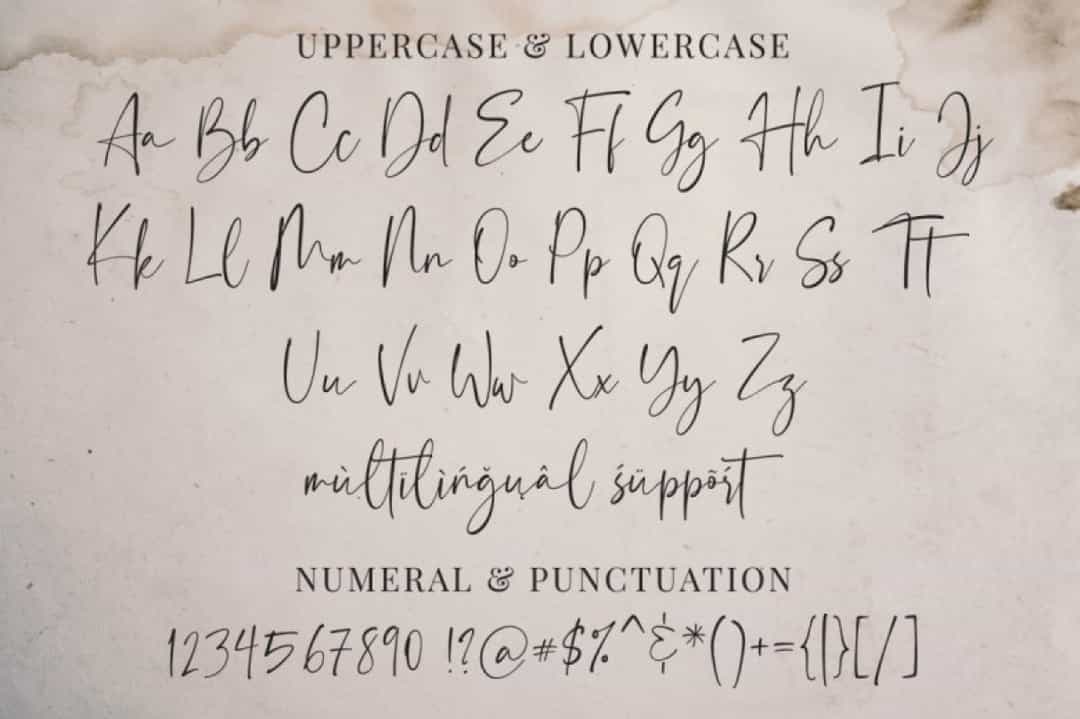 UPPERCASE & LOWERCASE
Aa Bb Cc Dd Ee Ff Gg Hh Ii Jj
Kk Ll Mm Nn Oo Pp Qq Rr Ss Tt
Uu Vv Ww Xx Yy Zz
mùltïlìńğuâl śüppõŕt
NUMERAL & PUNCTUATION
1234567890 !?@#$%^&*()+={|}[/]